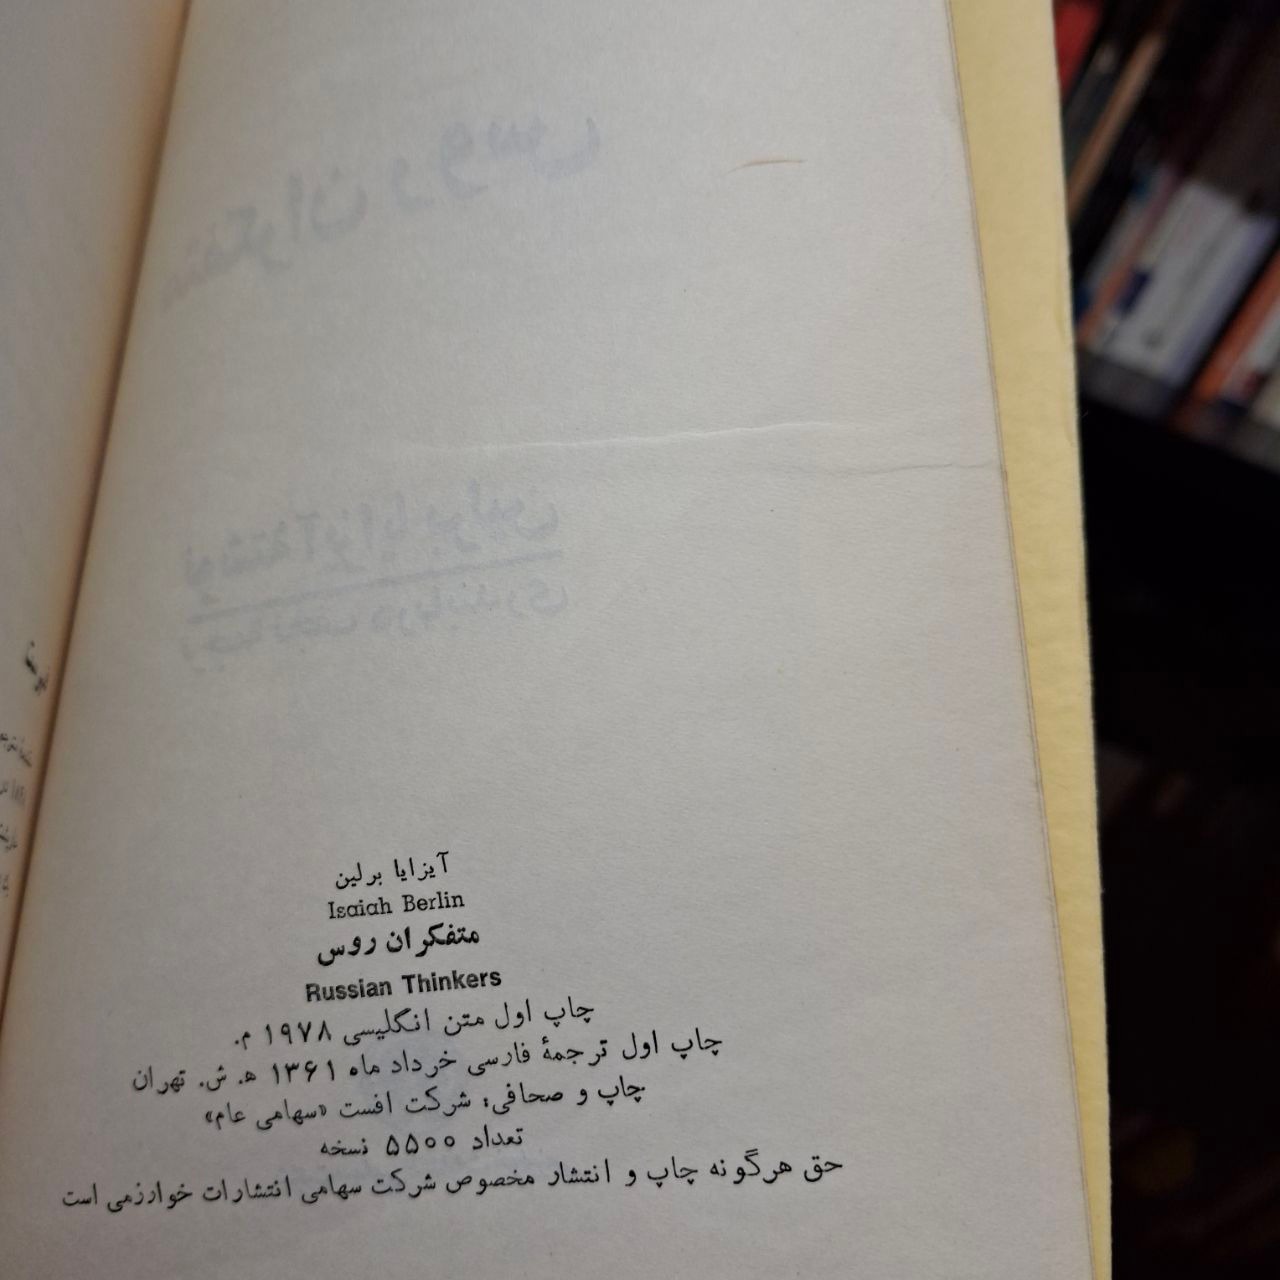 آیزایا برلین
Isaiah Berlin
متفکران روس
Russian Thinkers
چاپ اول متن انگلیسی ۱۹۷۸ م.
چاپ اول ترجمهٔ فارسی خرداد ماه ۱۳۶۱ ه‍. ش. تهران
چاپ و صحافی: شرکت افست «سهامی عام»
تعداد ۵۵۰۰ نسخه
حق هرگونه چاپ و انتشار مخصوص شرکت سهامی انتشارات خوارزمی است